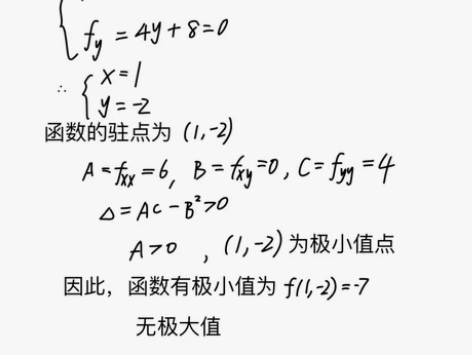 f_y = 4y + 8 = 0
∴ { x = 1
y = -2
函数的驻点为 (1, -2)
A = f_xx = 6, B = f_xy = 0, C = f_yy = 4
△ = AC - B² > 0
A > 0 , (1, -2) 为极小值点
因此，函数有极小值为 f(1, -2) = -7
无极大值